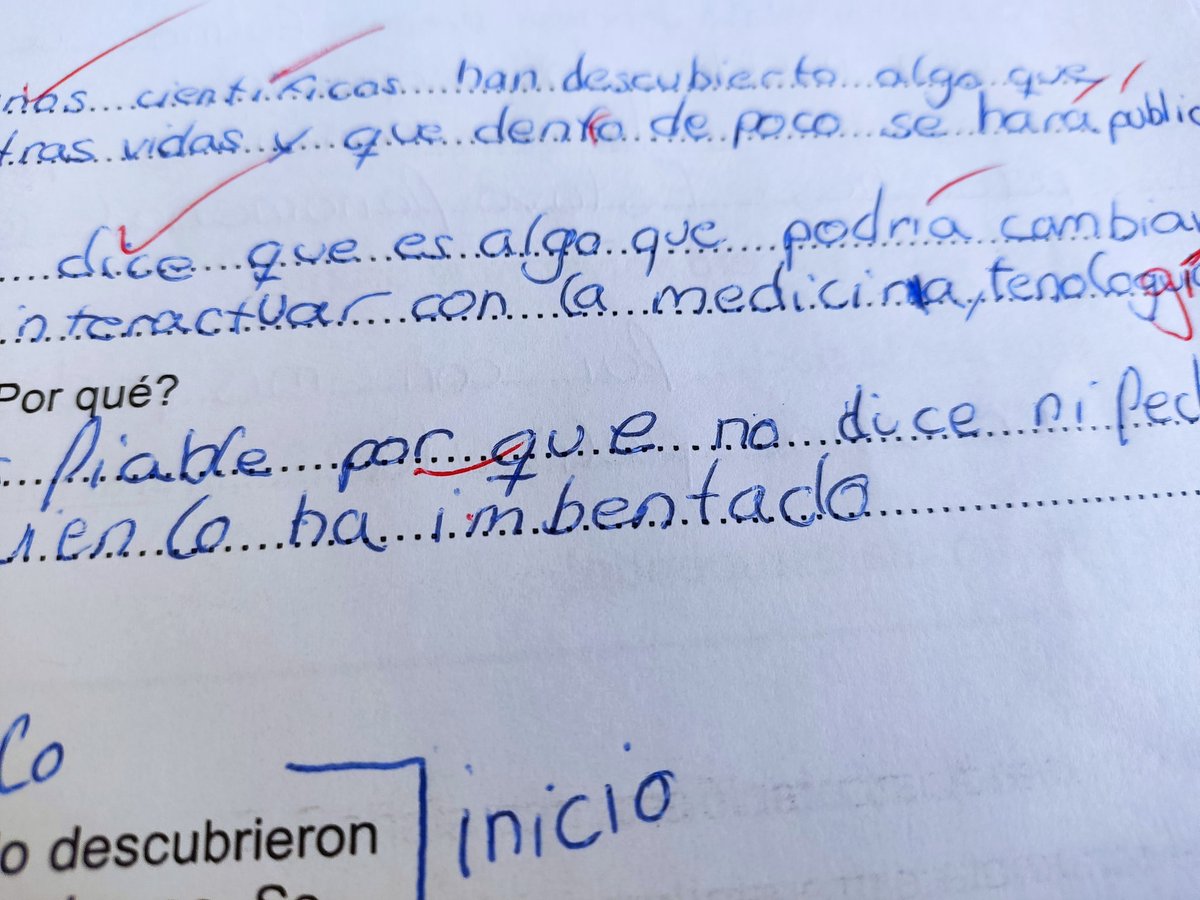 nos científicos han descubierto algo que
tras vidas y que dentro de poco se hará públic
dice que es algo que podría cambiar
interactuar con la medicina, tenología
Por qué?
fiable por que no dice ni fech
ien lo ha imbentado
lo
o descubrieron
inicio
So